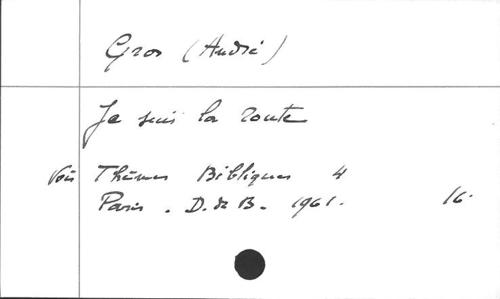 Gros (André)
Je suis la route
Voir Thèmes Bibliques 4
Paris. D. de B. 1961. 16.